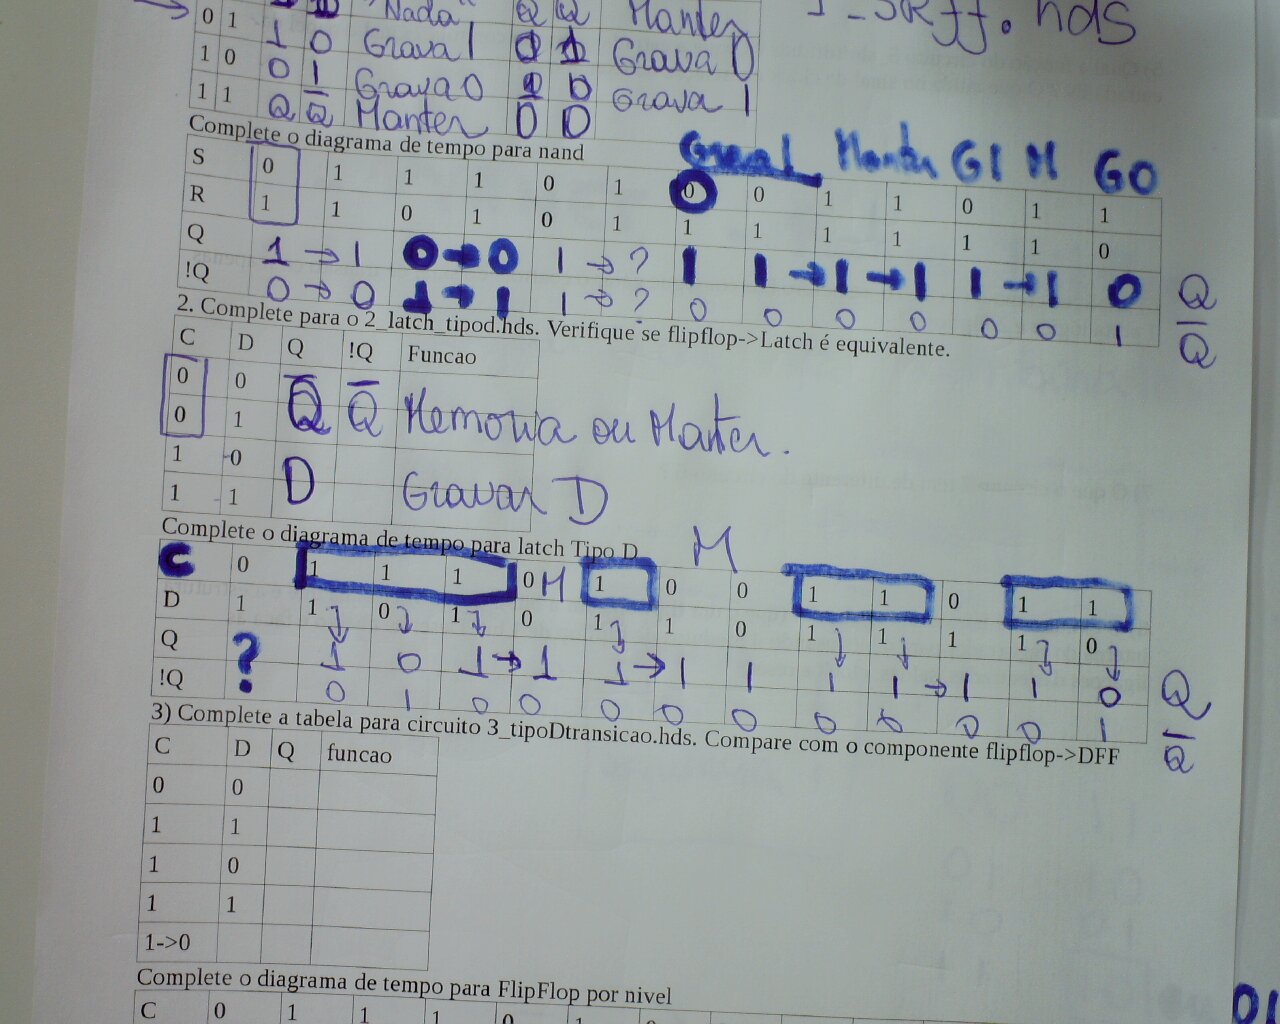 "Nada" Q Q Manter
0 1 1 0 Grava 1 0 1 Grava 0
1 0 0 1 Grava 0 1 0 Grava 1
1 1 Q Q̅ Manter 0 0
1_SRff.hds
Complete o diagrama de tempo para nand
Grava 1 Manter G1 M G0
S 0 1 1 1 0 1 0 0 1 1 0 1 1
R 1 1 0 1 0 1 1 1 1 1 1 1 0
Q 1 → 1 0 → 0 1 → ? 1 1 → 1 → 1 1 → 1 0 Q
!Q 0 → 0 1 → 1 1 → ? 0 0 0 0 0 0 1 Q̅
2. Complete para o 2_latch_tipod.hds. Verifique se flipflop->Latch é equivalente.
C D Q !Q Funcao
0 0
0 1 Q̅ Q̅ Memoria ou Manter.
1 0
1 1 D Gravar D
Complete o diagrama de tempo para latch Tipo D M
C 0 1 1 1 0 M 1 0 0 1 1 0 1 1
D 1 1 0 1 0 1 1 0 1 1 1 1 0
Q ? 1 0 1 → 1 1 → 1 1 1 1 → 1 1 0 Q
!Q 0 1 0 0 0 0 0 0 0 0 0 1 Q̅
3) Complete a tabela para circuito 3_tipoDtransicao.hds. Compare com o componente flipflop->DFF
C D Q funcao
0 0
1 1
1 0
1 1
1->0
Complete o diagrama de tempo para FlipFlop por nivel
C 0 1 1 1 0 1